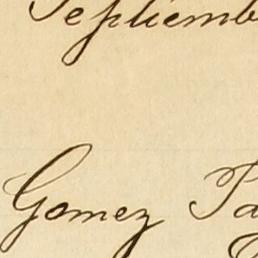 Septiemb
Gomez Pa